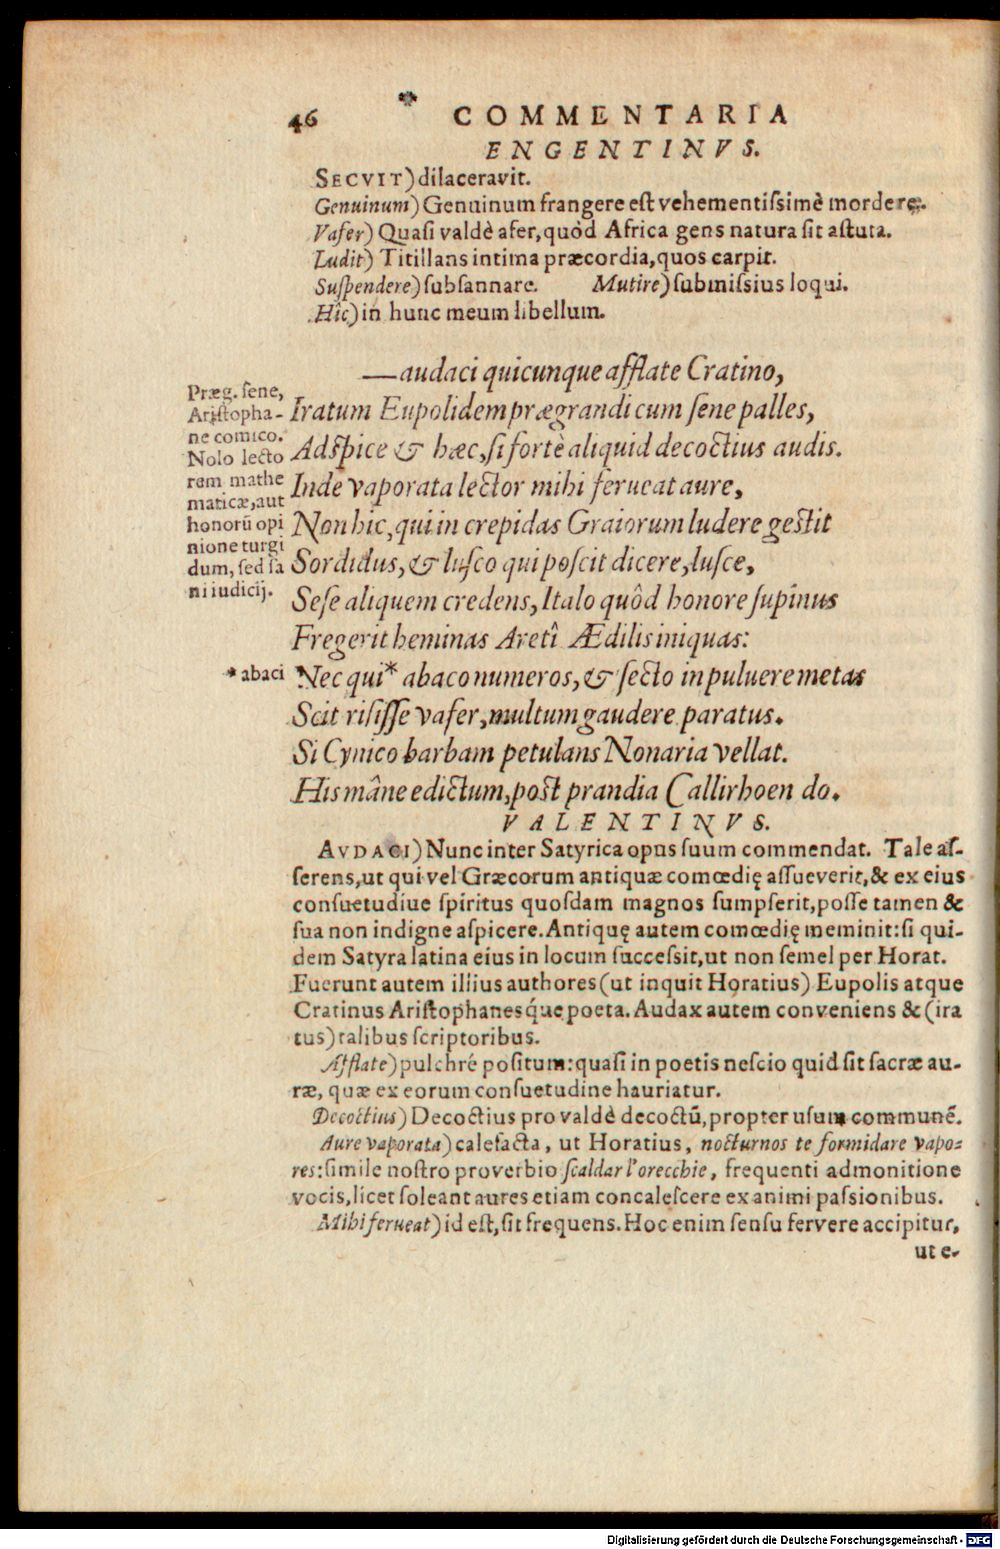 46 * COMMENTARIA
ENGENTINVS.
SECVIT) dilaceravit.
Genuinum) Genuinum frangere est vehementiſsimè mordere.
Vafer) Quaſi valdè afer, quòd Africa gens natura ſit aſtuta.
Ludit) Titillans intima præcordia, quos carpit.
Suſpendere) ſubſannare. Mutire) ſubmiſsius loqui.
Hîc) in hunc meum libellum.
—audaci quicunque afflate Cratino,
Iratum Eupolidem prægrandi cum ſene palles,
Adſpice & hæc, ſi fortè aliquid decoctius audis.
Inde vaporata lector mihi ferueat aure,
Non hic, qui in crepidas Graiorum ludere geſtit
Sordidus, & luſco qui poſcit dicere, luſce,
Seſe aliquem credens, Italo quôd honore ſupînus
Fregerit heminas Aretî Ædilis iniquas:
Nec qui* abaco numeros, & ſecto in puluere metas
Scit riſiſſe vafer, multum gaudere paratus.
Si Cynico barbam petulans Nonaria vellat.
His mâne edictum, poſt prandia Callirhoen do.
Præg. ſene,
Ariſtopha-
ne comico.
Nolo lecto
rem mathe
maticæ, aut
honorū opi
nione turgi
dum, ſed ſa
ni iudicij.
* abaci
VALENTINVS.
AVDACI) Nunc inter Satyrica opus ſuum commendat. Tale aſ-
ſerens, ut qui vel Græcorum antiquæ comœdię aſſueverit, & ex eius
conſuetudiue ſpiritus quoſdam magnos ſumpſerit, poſſe tamen &
ſua non indigne aſpicere. Antiquę autem comœdię meminit: ſi qui-
dem Satyra latina eius in locum ſucceſsit, ut non ſemel per Horat.
Fuerunt autem illius authores (ut inquit Horatius) Eupolis atque
Cratinus Ariſtophanesq́ue poeta. Audax autem conveniens & (ira
tus) talibus ſcriptoribus.
Afflate) pulchré poſitum: quaſi in poetis neſcio quid ſit ſacræ au-
ræ, quæ ex eorum conſuetudine hauriatur.
Decoctius) Decoctius pro valdè decoctū, propter uſum communē.
Aure vaporata) calefacta, ut Horatius, nocturnos te formidare vapo-
res: ſimile noſtro proverbio ſcaldar l'orecchie, frequenti admonitione
vocis, licet ſoleant aures etiam concaleſcere ex animi paſsionibus.
Mihi ferueat) id eſt, ſit frequens. Hoc enim ſenſu fervere accipitur,
ut e-
Digitalisierung gefördert durch die Deutsche Forschungsgemeinschaft - DFG